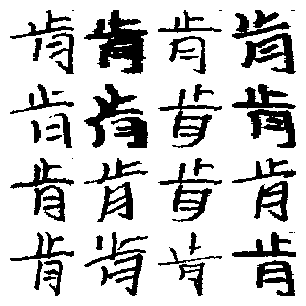 肯肯肯肯
肯肯肯肯
肯肯肯肯
肯肯肯肯